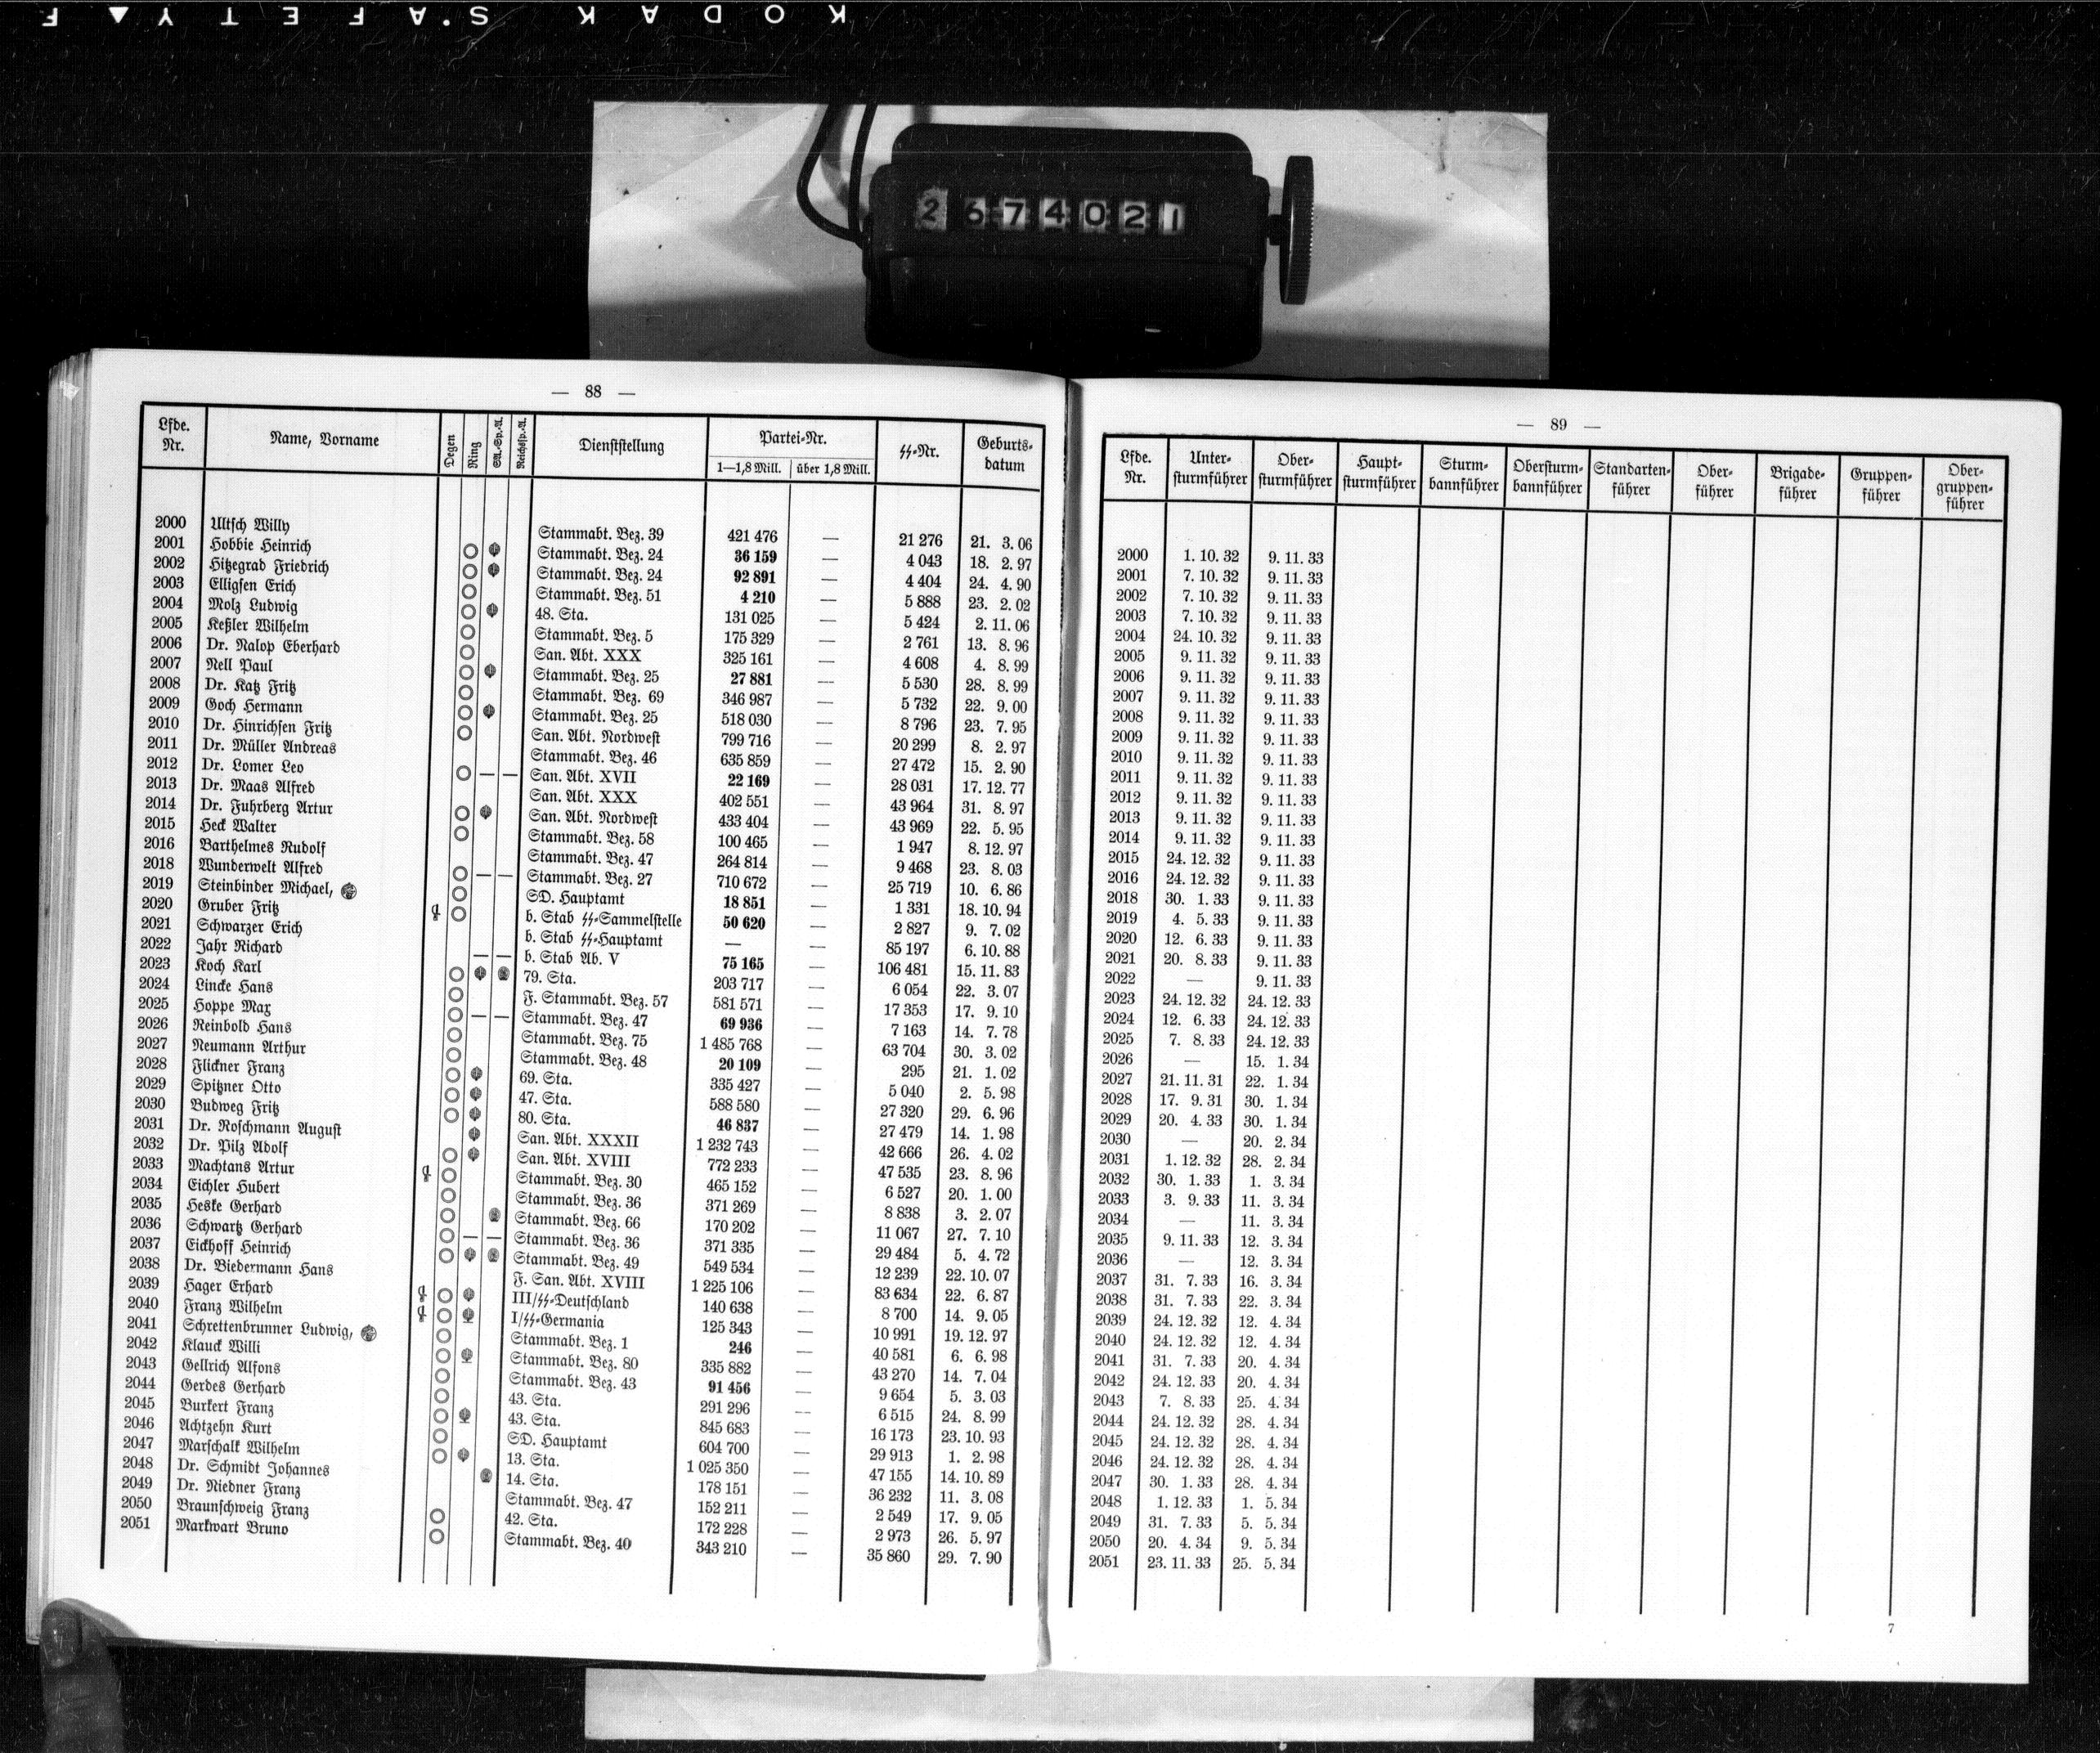 KODAK S'AFETY F
2674021
— 88 —
Lfde. Nr. Name, Vorname Degen Ring SA.-Sp.-A. Reichssp.-A. Dienststellung Partei-Nr. 1—1,8 Mill. über 1,8 Mill. ϟϟ-Nr. Geburts-datum
2000 Ultsch Willy Stammabt. Bez. 39 421 476 — 21 276 21. 3. 06
2001 Hobbie Heinrich Stammabt. Bez. 24 36 159 — 4 043 18. 2. 97
2002 Hitzegrad Friedrich Stammabt. Bez. 24 92 891 — 4 404 24. 4. 90
2003 Elligsen Erich Stammabt. Bez. 51 4 210 — 5 888 23. 2. 02
2004 Molz Ludwig 48. Sta. 131 025 — 5 424 2. 11. 06
2005 Keßler Wilhelm Stammabt. Bez. 5 175 329 — 2 761 13. 8. 96
2006 Dr. Nalop Eberhard San. Abt. XXX 325 161 — 4 608 4. 8. 99
2007 Nell Paul Stammabt. Bez. 25 27 881 — 5 530 28. 8. 99
2008 Dr. Katz Fritz Stammabt. Bez. 69 346 987 — 5 732 22. 9. 00
2009 Goch Hermann Stammabt. Bez. 25 518 030 — 8 796 23. 7. 95
2010 Dr. Hinrichsen Fritz San. Abt. Nordwest 799 716 — 20 299 8. 2. 97
2011 Dr. Müller Andreas Stammabt. Bez. 46 635 859 — 27 472 15. 2. 90
2012 Dr. Lomer Leo — — San. Abt. XVII 22 169 — 28 031 17. 12. 77
2013 Dr. Maas Alfred San. Abt. XXX 402 551 — 43 964 31. 8. 97
2014 Dr. Fuhrberg Artur San. Abt. Nordwest 433 404 — 43 969 22. 5. 95
2015 Heck Walter Stammabt. Bez. 58 100 465 — 1 947 8. 12. 97
2016 Barthelmes Rudolf Stammabt. Bez. 47 264 814 — 9 468 23. 8. 03
2018 Wunderwelt Alfred — — Stammabt. Bez. 27 710 672 — 25 719 10. 6. 86
2019 Steinbinder Michael, SD. Hauptamt 18 851 — 1 331 18. 10. 94
2020 Gruber Fritz b. Stab ϟϟ-Sammelstelle 50 620 — 2 827 9. 7. 02
2021 Schwarzer Erich b. Stab ϟϟ-Hauptamt — — 85 197 6. 10. 88
2022 Jahr Richard — — b. Stab Ab. V 75 165 — 106 481 15. 11. 83
2023 Koch Karl 79. Sta. 203 717 — 6 054 22. 3. 07
2024 Lincke Hans F. Stammabt. Bez. 57 581 571 — 17 353 17. 9. 10
2025 Hoppe Max — — Stammabt. Bez. 47 69 936 — 7 163 14. 7. 78
2026 Reinbold Hans Stammabt. Bez. 75 1 485 768 — 63 704 30. 3. 02
2027 Neumann Arthur Stammabt. Bez. 48 20 109 — 295 21. 1. 02
2028 Flickner Franz 69. Sta. 335 427 — 5 040 2. 5. 98
2029 Spitzner Otto 47. Sta. 588 580 — 27 320 29. 6. 96
2030 Budweg Fritz 80. Sta. 46 837 — 27 479 14. 1. 98
2031 Dr. Roschmann August San. Abt. XXXII 1 232 743 — 42 666 26. 4. 02
2032 Dr. Pilz Adolf San. Abt. XVIII 772 233 — 47 535 23. 8. 96
2033 Machtans Artur Stammabt. Bez. 30 465 152 — 6 527 20. 1. 00
2034 Eichler Hubert Stammabt. Bez. 36 371 269 — 8 838 3. 2. 07
2035 Heske Gerhard Stammabt. Bez. 66 170 202 — 11 067 27. 7. 10
2036 Schwartz Gerhard — — Stammabt. Bez. 36 371 335 — 29 484 5. 4. 72
2037 Eickhoff Heinrich Stammabt. Bez. 49 549 534 — 12 239 22. 10. 07
2038 Dr. Biedermann Hans F. San. Abt. XVIII 1 225 106 — 83 634 22. 6. 87
2039 Hager Erhard III/ϟϟ-Deutschland 140 638 — 8 700 14. 9. 05
2040 Franz Wilhelm I/ϟϟ-Germania 125 343 — 10 991 19. 12. 97
2041 Schrettenbrunner Ludwig, Stammabt. Bez. 1 246 — 40 581 6. 6. 98
2042 Klauck Willi Stammabt. Bez. 80 335 882 — 43 270 14. 7. 04
2043 Gellrich Alfons Stammabt. Bez. 43 91 456 — 9 654 5. 3. 03
2044 Gerdes Gerhard 43. Sta. 291 296 — 6 515 24. 8. 99
2045 Burkert Franz 43. Sta. 845 683 — 16 173 23. 10. 93
2046 Achtzehn Kurt SD. Hauptamt 604 700 — 29 913 1. 2. 98
2047 Marschalk Wilhelm 13. Sta. 1 025 350 — 47 155 14. 10. 89
2048 Dr. Schmidt Johannes 14. Sta. 178 151 — 36 232 11. 3. 08
2049 Dr. Niedner Franz Stammabt. Bez. 47 152 211 — 2 549 17. 9. 05
2050 Braunschweig Franz 42. Sta. 172 228 — 2 973 26. 5. 97
2051 Markwart Bruno Stammabt. Bez. 40 343 210 — 35 860 29. 7. 90
— 89 —
Lfde. Nr. Unter-sturmführer Ober-sturmführer Haupt-sturmführer Sturm-bannführer Obersturm-bannführer Standarten-führer Ober-führer Brigade-führer Gruppen-führer Ober-gruppen-führer
2000 1. 10. 32 9. 11. 33
2001 7. 10. 32 9. 11. 33
2002 7. 10. 32 9. 11. 33
2003 7. 10. 32 9. 11. 33
2004 24. 10. 32 9. 11. 33
2005 9. 11. 32 9. 11. 33
2006 9. 11. 32 9. 11. 33
2007 9. 11. 32 9. 11. 33
2008 9. 11. 32 9. 11. 33
2009 9. 11. 32 9. 11. 33
2010 9. 11. 32 9. 11. 33
2011 9. 11. 32 9. 11. 33
2012 9. 11. 32 9. 11. 33
2013 9. 11. 32 9. 11. 33
2014 9. 11. 32 9. 11. 33
2015 24. 12. 32 9. 11. 33
2016 24. 12. 32 9. 11. 33
2018 30. 1. 33 9. 11. 33
2019 4. 5. 33 9. 11. 33
2020 12. 6. 33 9. 11. 33
2021 20. 8. 33 9. 11. 33
2022 — 9. 11. 33
2023 24. 12. 32 24. 12. 33
2024 12. 6. 33 24. 12. 33
2025 7. 8. 33 24. 12. 33
2026 — 15. 1. 34
2027 21. 11. 31 22. 1. 34
2028 17. 9. 31 30. 1. 34
2029 20. 4. 33 30. 1. 34
2030 — 20. 2. 34
2031 1. 12. 32 28. 2. 34
2032 30. 1. 33 1. 3. 34
2033 3. 9. 33 11. 3. 34
2034 — 11. 3. 34
2035 9. 11. 33 12. 3. 34
2036 — 12. 3. 34
2037 31. 7. 33 16. 3. 34
2038 31. 7. 33 22. 3. 34
2039 24. 12. 32 12. 4. 34
2040 24. 12. 32 12. 4. 34
2041 31. 7. 33 20. 4. 34
2042 24. 12. 33 20. 4. 34
2043 7. 8. 33 25. 4. 34
2044 24. 12. 32 28. 4. 34
2045 24. 12. 32 28. 4. 34
2046 24. 12. 32 28. 4. 34
2047 30. 1. 33 28. 4. 34
2048 1. 12. 33 1. 5. 34
2049 31. 7. 33 5. 5. 34
2050 20. 4. 34 9. 5. 34
2051 23. 11. 33 25. 5. 34
7